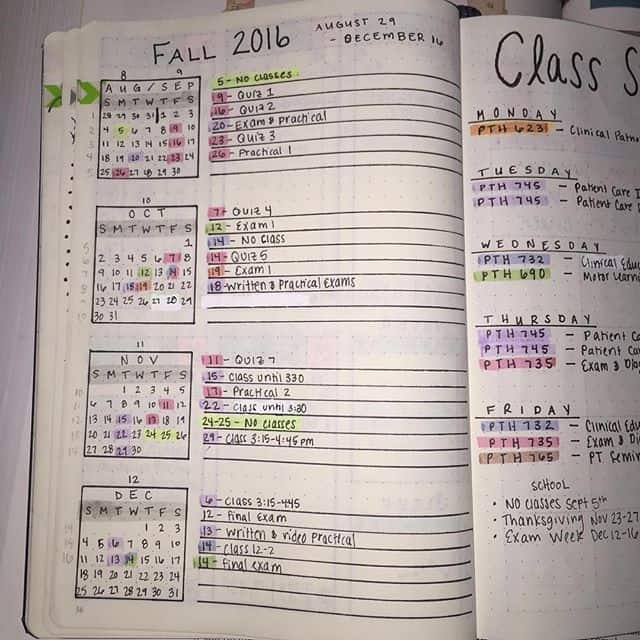 FALL 2016
AUGUST 29
- DECEMBER 16
8 9
AUG/SEP
S M T W T F S
1 28 29 30 31 1 2 3
2 4 5 6 7 8 9 10
3 11 12 13 14 15 16 17
4 18 19 20 21 22 23 24
5 25 26 27 28 29 30
5 - NO CLASSES
9 - QUIZ 1
16 - QUIZ 2
20 - Exam & practical
23 - QUIZ 3
26 - Practical 1
10
OCT
S M T W T F S
1
2 3 4 5 6 7 8
9 10 11 12 13 14 15
16 17 18 19 20 21 22
23 24 25 26 27 28 29
30 31
7 - QUIZ 4
12 - Exam 1
14 - NO CLASS
14 - QUIZ 5
19 - Exam 1
18 - Written & Practical Exams
11
NOV
S M T W T F S
1 2 3 4 5
6 7 8 9 10 11 12
13 14 15 16 17 18 19
20 21 22 23 24 25 26
27 28 29 30
11 - QUIZ 7
15 - Class until 330
17 - Practical 2
22 - class until 3:30
24-25 - NO Classes
29 - Class 3:15-4:45 pm
12
DEC
S M T W T F S
1 2 3
4 5 6 7 8 9 10
11 12 13 14 15 16 17
18 19 20 21 22 23 24
25 26 27 28 29 30 31
6 - Class 3:15-445
12 - Final Exam
13 - Written & video Practical
14 - Class 12-2
14 - Final exam
Class S
MONDAY
PTH 623 - Clinical Patho
TUESDAY
PTH 745 - Patient Care
PTH 745 - Patient Care
WEDNESDAY
PTH 732 - Clinical Educ
PTH 690 - Motor Learn
THURSDAY
PTH 745 - Patient Ca
PTH 745 - Patient Ca
PTH 735 - Exam & Diag
FRIDAY
PTH 732 - Clinical Edu
PTH 735 - Exam & Di
PTH 765 - PT Semin
SCHOOL
• NO Classes Sept 5th
• Thanksgiving Nov 23-27
• Exam Week Dec 12-16